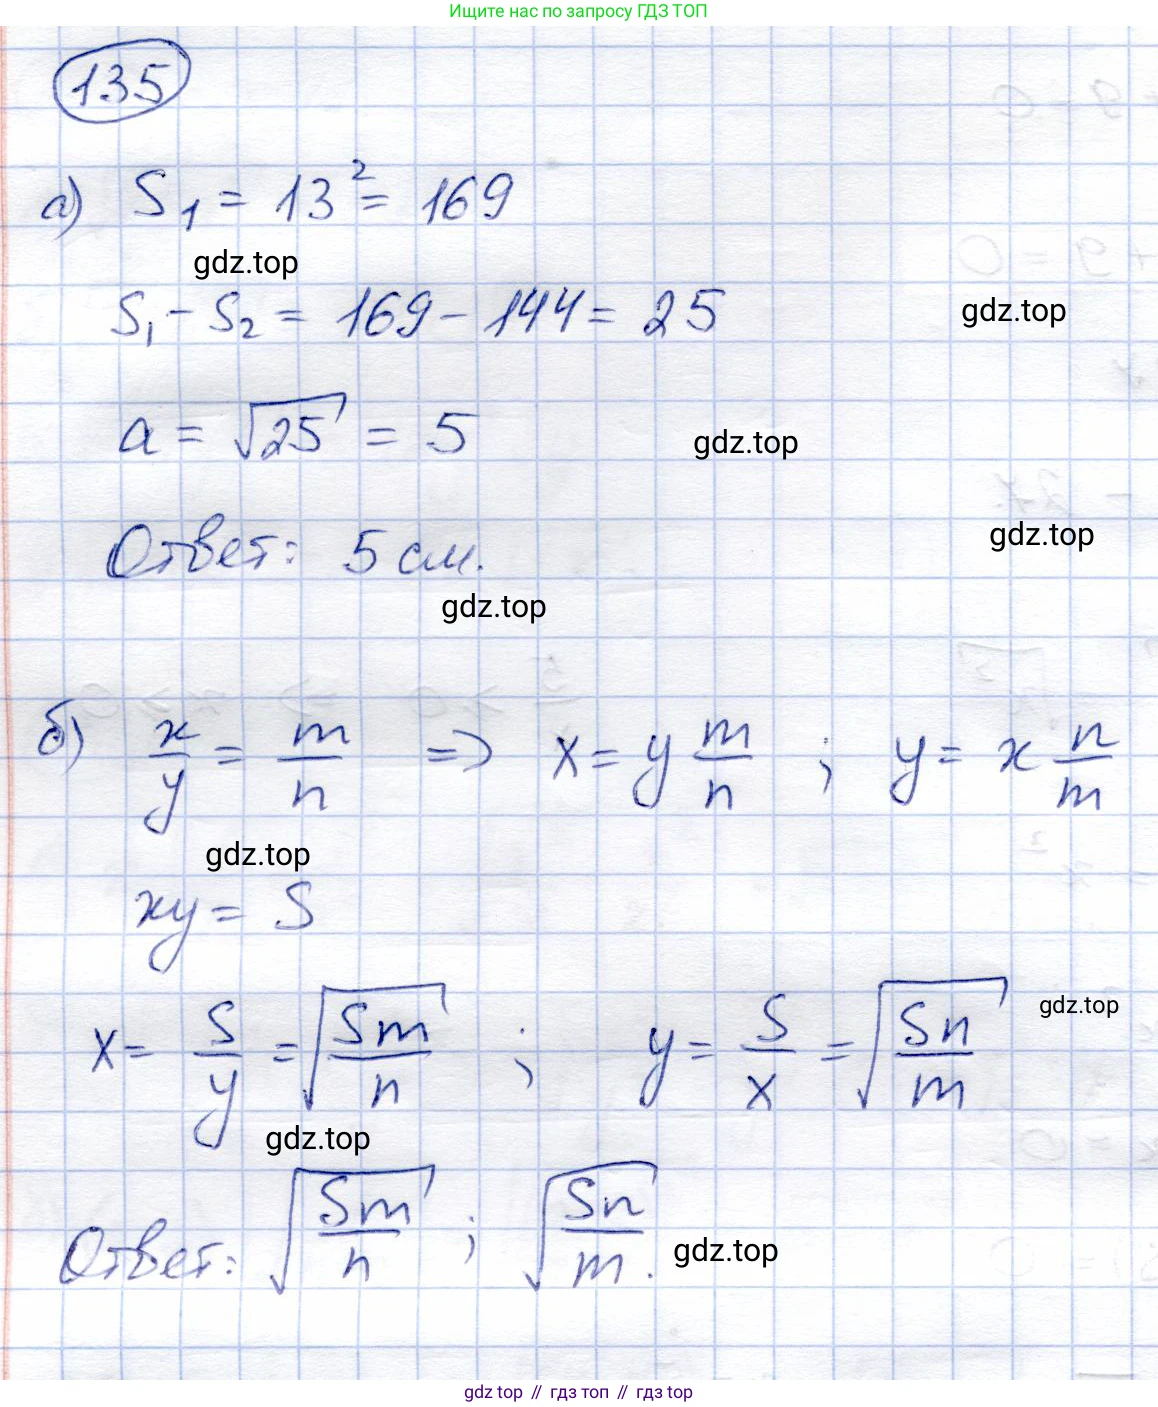 Ищите нас по запросу ГДЗ ТОП
135
а) S₁ = 13² = 169
gdz.top
S₁ - S₂ = 169 - 144 = 25
gdz.top
a = √25 = 5
gdz.top
Ответ: 5 см.
gdz.top
gdz.top
б) x/y = m/n => x = y m/n ; y = x n/m
gdz.top
xy = S
x = S/y = √(Sm/n) ; y = S/x = √(Sn/m)
gdz.top
gdz.top
Ответ: √(Sm/n) ; √(Sn/m).
gdz.top
gdz top // гдз топ // гдз top